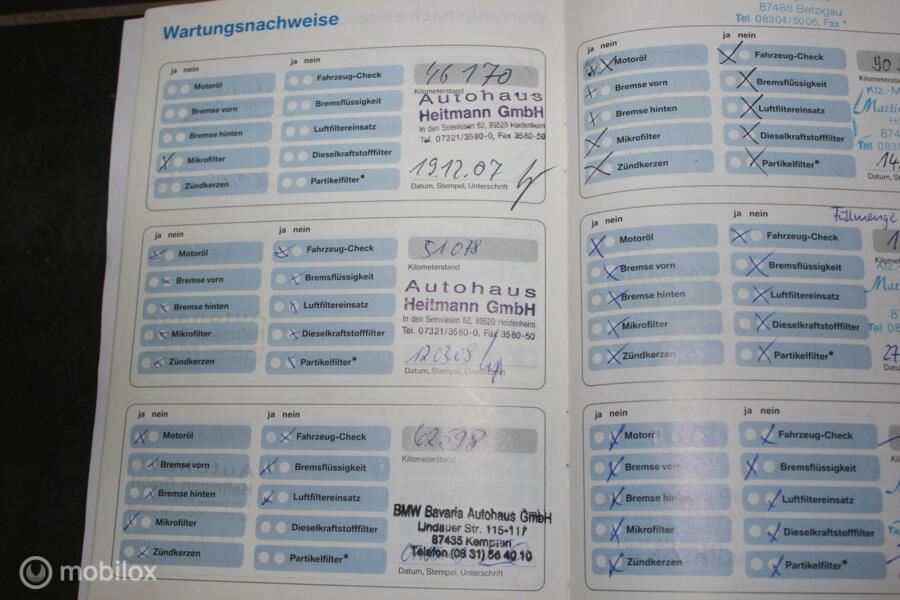 Wartungsnachweise
ja nein
Motoröl
Bremse vorn
Bremse hinten
Mikrofilter
Zündkerzen
ja nein
Fahrzeug-Check
Bremsflüssigkeit
Luftfiltereinsatz
Dieselkraftstofffilter
Partikelfilter*
46 170
Kilometerstand
Autohaus
Heitmann GmbH
In den Seewiesen 62, 89520 Heidenheim
Tel. 07321/3580-0, Fax 3580-50
19.12.07
Datum, Stempel, Unterschrift
ja nein
Motoröl
Bremse vorn
Bremse hinten
Mikrofilter
Zündkerzen
ja nein
Fahrzeug-Check
Bremsflüssigkeit
Luftfiltereinsatz
Dieselkraftstofffilter
Partikelfilter*
51 078
Kilometerstand
Autohaus
Heitmann GmbH
In den Seewiesen 62, 89520 Heidenheim
Tel. 07321/3580-0, Fax 3580-50
12.03.08
Datum, Stempel, Unterschrift
ja nein
Motoröl
Bremse vorn
Bremse hinten
Mikrofilter
Zündkerzen
ja nein
Fahrzeug-Check
Bremsflüssigkeit
Luftfiltereinsatz
Dieselkraftstofffilter
Partikelfilter*
Kilometerstand
BMW Bavaria Autohaus GmbH
Lindauer Str. 115-117
87435 Kempten
Telefon (08 31) 56 40 10
Datum, Stempel, Unterschrift
87488 Betzigau
Tel. 08304/5006, Fax
ja nein
Motoröl
Bremse vorn
Bremse hinten
Mikrofilter
Zündkerzen
ja nein
Fahrzeug-Check
Bremsflüssigkeit
Luftfiltereinsatz
Dieselkraftstofffilter
Partikelfilter*
90
Kilometerst
Kfz.-M
Marti
874
Tel. 083
14.
Datum, S
Füllmenge
ja nein
Motoröl
Bremse vorn
Bremse hinten
Mikrofilter
Zündkerzen
ja nein
Fahrzeug-Check
Bremsflüssigkeit
Luftfiltereinsatz
Dieselkraftstofffilter
Partikelfilter*
1
Kilome
Kfz.-
Mar
Tel 08
27
Datu
ja nein
Motoröl
Bremse vorn
Bremse hinten
Mikrofilter
Zündkerzen
ja nein
Fahrzeug-Check
Bremsflüssigkeit
Luftfiltereinsatz
Dieselkraftstofffilter
Partikelfilter*
mobilox